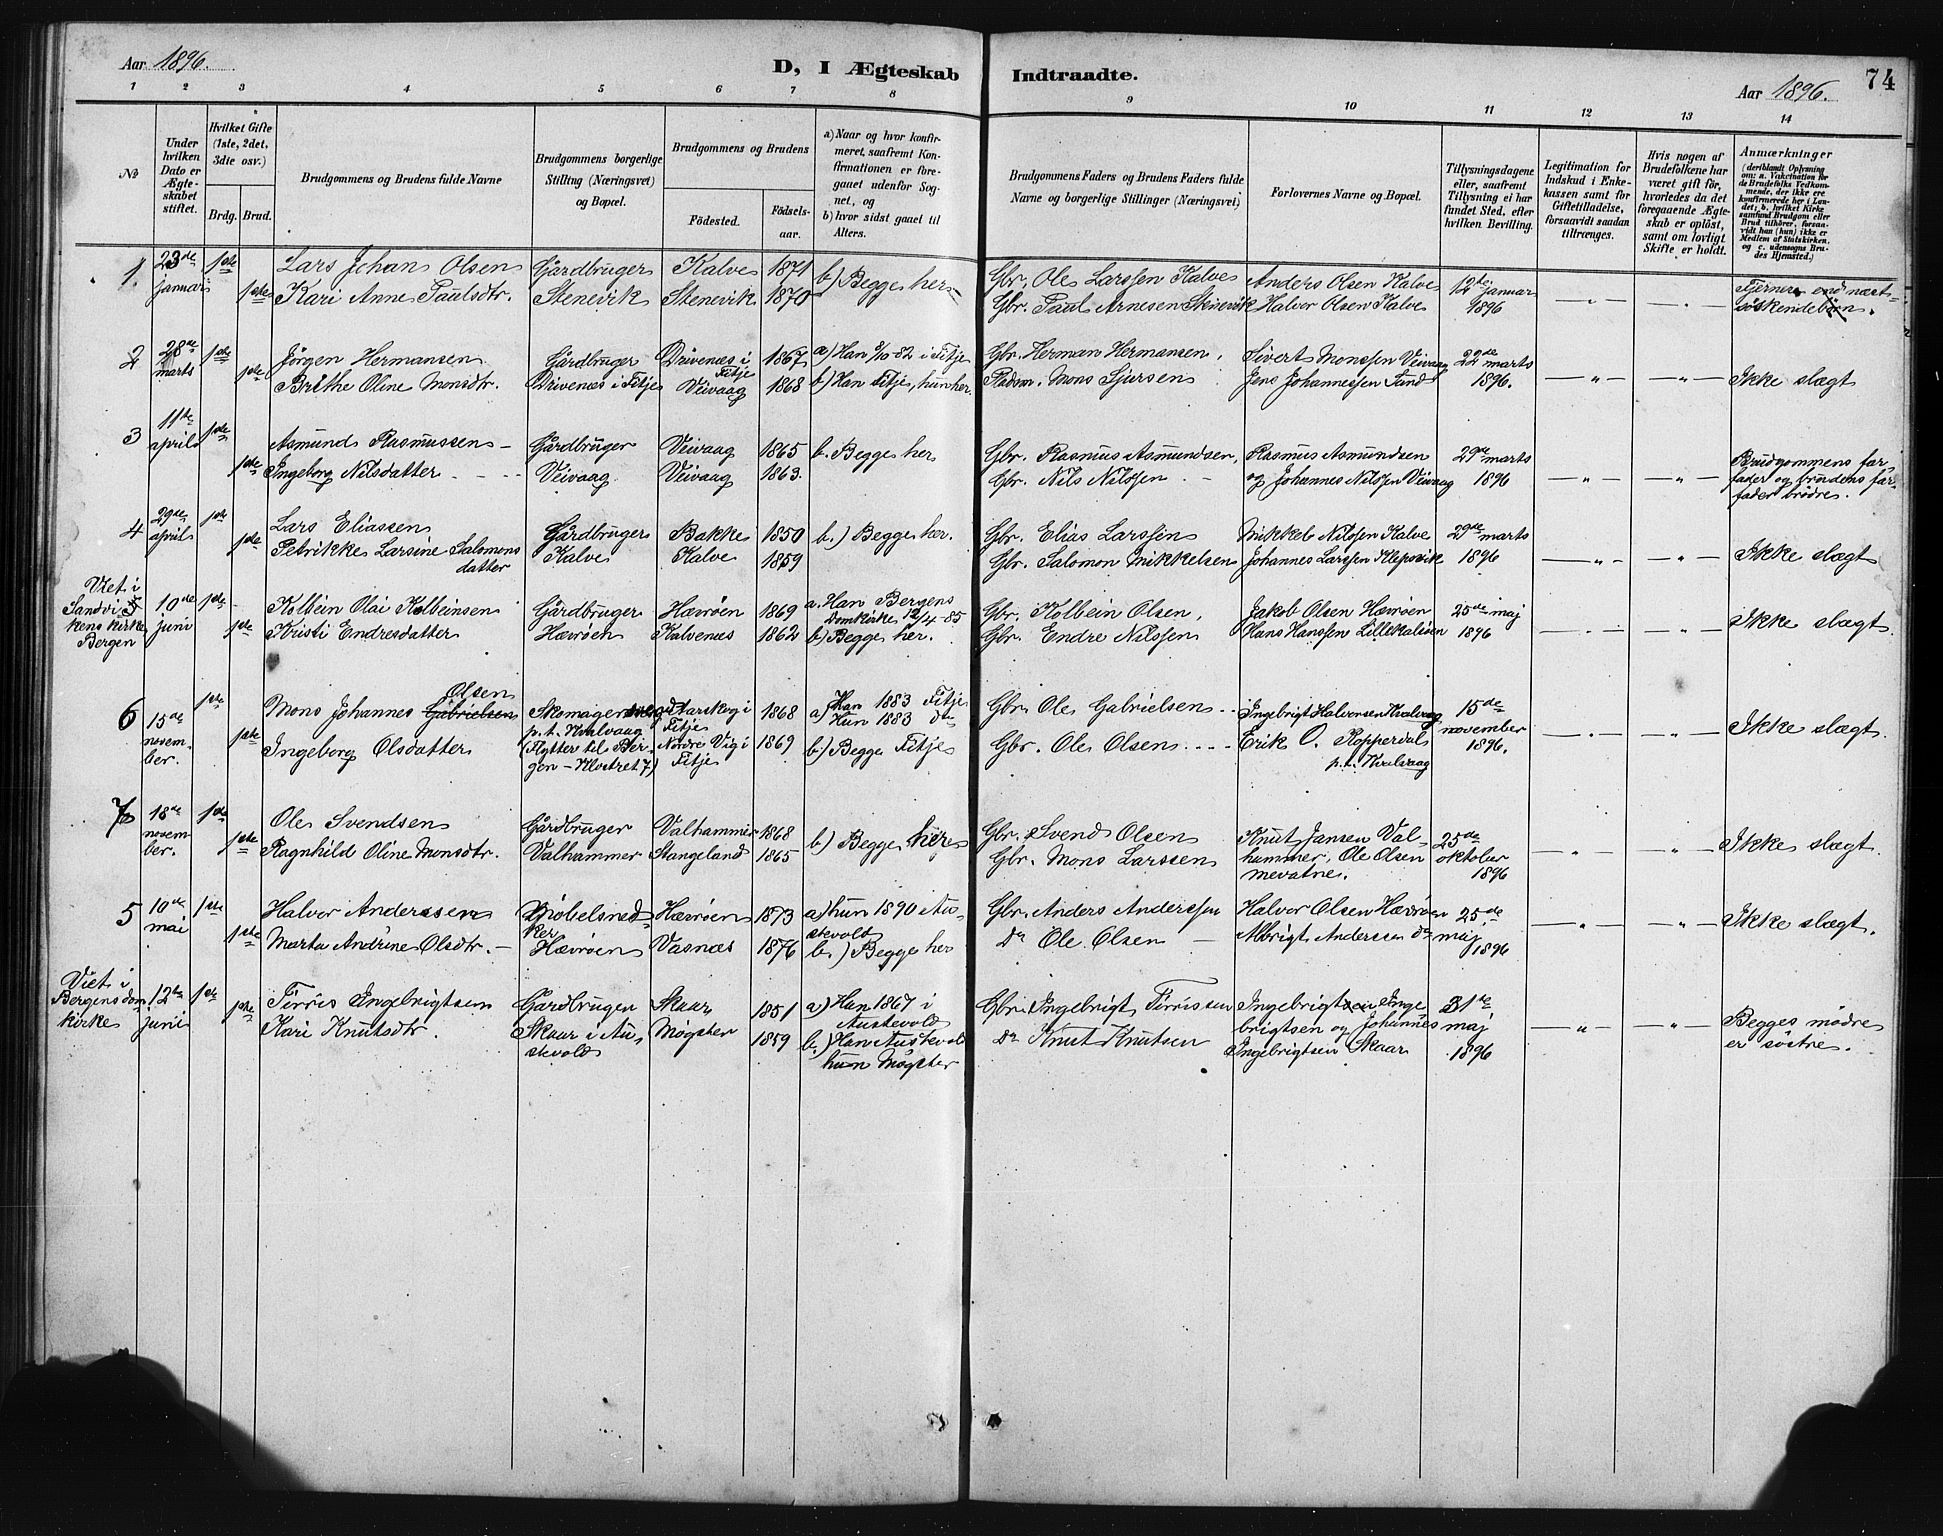 Aar 1896.
D, I Ægteskab Indtraadte.
Aar 1896.
74
1 2 3 4 5 6 7 8 9 10 11 12 13 14
No
Under hvilken Dato er Ægteskabet stiftet.
Hvilket Gifte (1ste, 2det, 3die osv.)
Brdg. Brud.
Brudgommens og Brudens fulde Navne
Brudgommens borgerlige Stilling (Næringsvei) og Bopæl.
Brudgommens og Brudens
Fødested. Fødselsaar.
a) Naar og hvor konfirmeret, saafremt Konfirmationen er foregaaet udenfor Sognet, og
b) hvor sidst gaaet til Alters.
Brudgommens Faders og Brudens Faders fulde Navne og borgerlige Stillinger (Næringsvei)
Forlovernes Navne og Bopæl.
Tillysningsdagene eller, saafremt Tillysning ei har fundet Sted, efter hvilken Bevilling.
Legitimation for Indskud i Enkekassen samt for Giftetilladelse, forsaavidt saadan tiltrænges.
Hvis nogen af Brudefolkene har været gift før, hvorledes da det foregaaende Ægteskab er opløst, samt om lovligt Skifte er holdt.
Anmærkninger
(deriblandt Oplysning om: a. Vakcination for de Brudefolks Vedkommende, der ikke ere konfirmerede her i Landet; b. hvilket Kirkesamfund Brudgom eller Brud tilhører, forsaavidt han (hun) ikke er Medlem af Statskirken, og c. udensogns Brudes Hjemsted.)
1. 23de januar 1ste Lars Johan Olsen Gårdbruger Kalve 1871 b) Begge her Gbr. Ole Larssen Kalve Anders Olsen Kalve 12te januar
1ste Kari Anne Paulsdtr. Stenevik Stenevik 1870 Gbr. Paul Arnesen Stenevik Halvor Olsen Kalve 1896 — " — — " — Fjernere end næstsøskendebørn.
2 28de marts 1ste Jörgen Hermansen Gårdbruger Drivenæs i Fitje 1867 a) Han 8/10 82 i Fitje Gbr. Herman Hermansen, Sivert Monssen Veivaag 22de marts
1ste Brithe Oline Monsdtr. Drivenæs i Fitje Veivaag 1868 b) Han Fitje, hun her. Pladsm. Mons Sjursen Jens Johannessen Sand 1896. — " — — " — Ikke slægt
3 11te april 1ste Asmund Rasmussen Gårdbruger Veivaag 1865 b. Begge her Gbr. Rasmus Asmundsen, Rasmus Asmundsen 29de marts
1ste Ingeborg Nilsdatter Veivaag Veivaag 1863. Gbr. Nils Nilssen og Johannes Nilssen Veivaag 1896 — " — — " — Brudgommens farfader og brudens farfader brödre.
4 29de april 1ste Lars Eliassen Gårdbruger Bakke 1850 b.) Begge her. Gbr. Elias Larssen Mikkel Nilssen Kalve 29de marts
1ste Petrikke Larsine Salomonsdatter Kalve Kalve 1859 Gbr. Salomon Mikkelsen Johannes Larssen Klepsvik 1896 — " — — " — Ikke slægt
Viet i Sandvikens kirke Bergen 10de juni 1ste Kolbein Olai Kolbeinsen Gårdbruger Hævröen 1869 a. Han Bergens Domkirke, 12/4-85 Gbr. Kolbein Olsen, Jakob Olsen Hævröen 25de maj
1ste Kristi Endresdatter Hævröen Kalvenes 1862 b) Begge her. Gbr. Endre Nilssen Hans Hanssen Lillekalsöen 1896 — " — — " — Ikke slægt.
6 15de november. 1ste Mons Johannes Gabrielsen Olsen Skomagersvend p.t. Kvalvaag Tarskog i Fitje 1868 a) Han 1883 Fitje Hun 1883 do Gbr. Ole Gabrielsen Ingebrigt Halvorsen Kvalvaag 15de november
1ste Ingeborg Olsdatter (Flytter til Bergen - Klostret 7) Nordre Vig i Fitje 1869 b) Begge Fitje Gbr. Ole Olsen Erik O. Ropperdal p.t. Kvalvaag 1896. — " — — " — Ikke slægt.
7 18de november. 1ste Ole Svendsen Gårdbruger Valhammer 1868 b) Begge here Gbr. Svend Olsen Knut Jansen Valhammer, Ole Olsen Mevatne. 25de oktober 1896
1ste Ragnhild Oline Monsdtr. Valhammer Stangeland 1865 Gbr. Mons Larssen — " — — " — Ikke slægt.
5 10de mai 1ste Halvor Anderssen Møbelsnedker Hævröen 1873 a) hun 1890 Austevold Gbr. Anders Anderssen Halvor Olsen Hævröen 25de maj 1896
1ste Marta Andrine Olsdtr. Hævröen Vasnæs 1876 b.) Begge her Do Ole Olsen Albrigt Anderssen do — " — — " — Ikke slægt.
Viet i Bergens domkirke 12te juni 1ste Tirris Ingebrigtsen Gårdbruger Skaar 1851 a) Han 1867 i Austevold Gbr. Ingebrigt Tirrissen Ingebrigt Ingebrigtsen og Johannes Ingebrigtsen Skaar 31de maj 1896
1ste Kari Knutsdtr. Skaar i Austevold Møgster 1859 b.) Han Austevold hun Møgster Do Knut Knutsen — " — — " — Begges mødre er søstre.